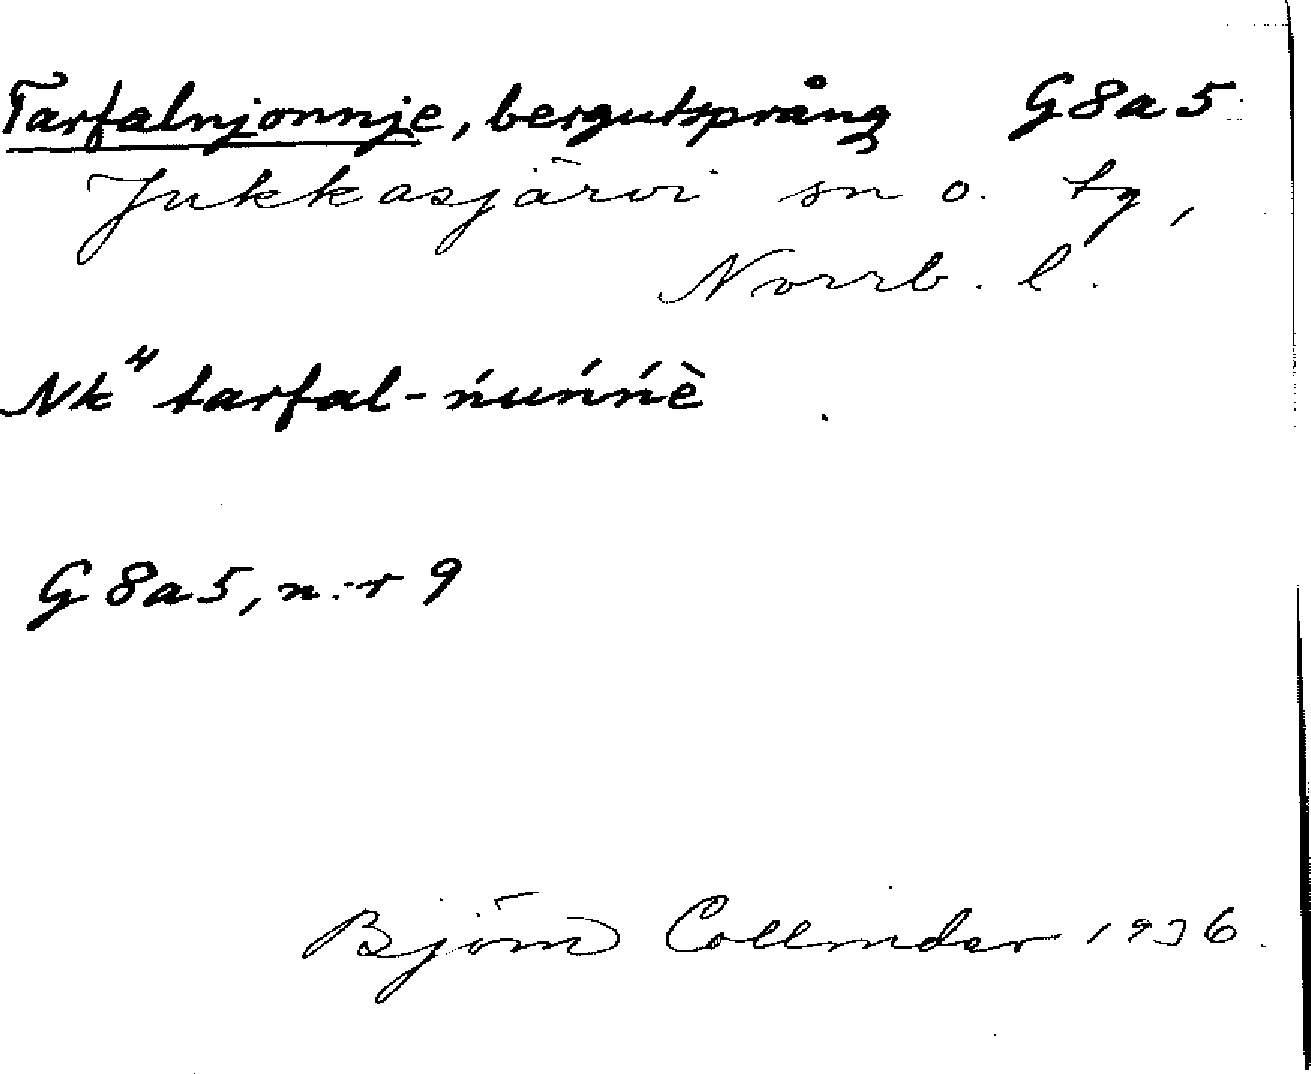 Tarfalnjonnje, bergutsprång G8a5
Jukkasjärvi sn o. tg,
Norrb. l.
Nk" tarfal-ńuńńè
G8a5, n:r 9
Björn Collinder 1936.